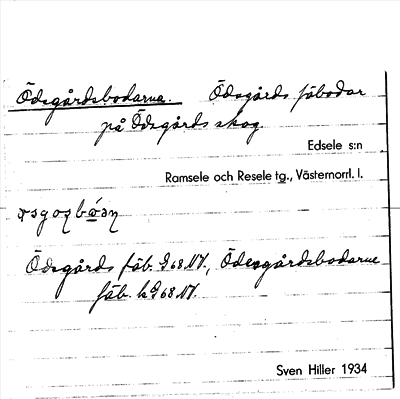 Ödsgårdsbodarna. Ödsgårds fäbodar
på Ödsgårds skog
Edsele s:n
Ramsele och Resele tg., Västernorrl. l.
Ödsgårds fäb. G 68 NV., Ödesgårdsbodarne
fäb. k G 68 NV.
Sven Hiller 1934